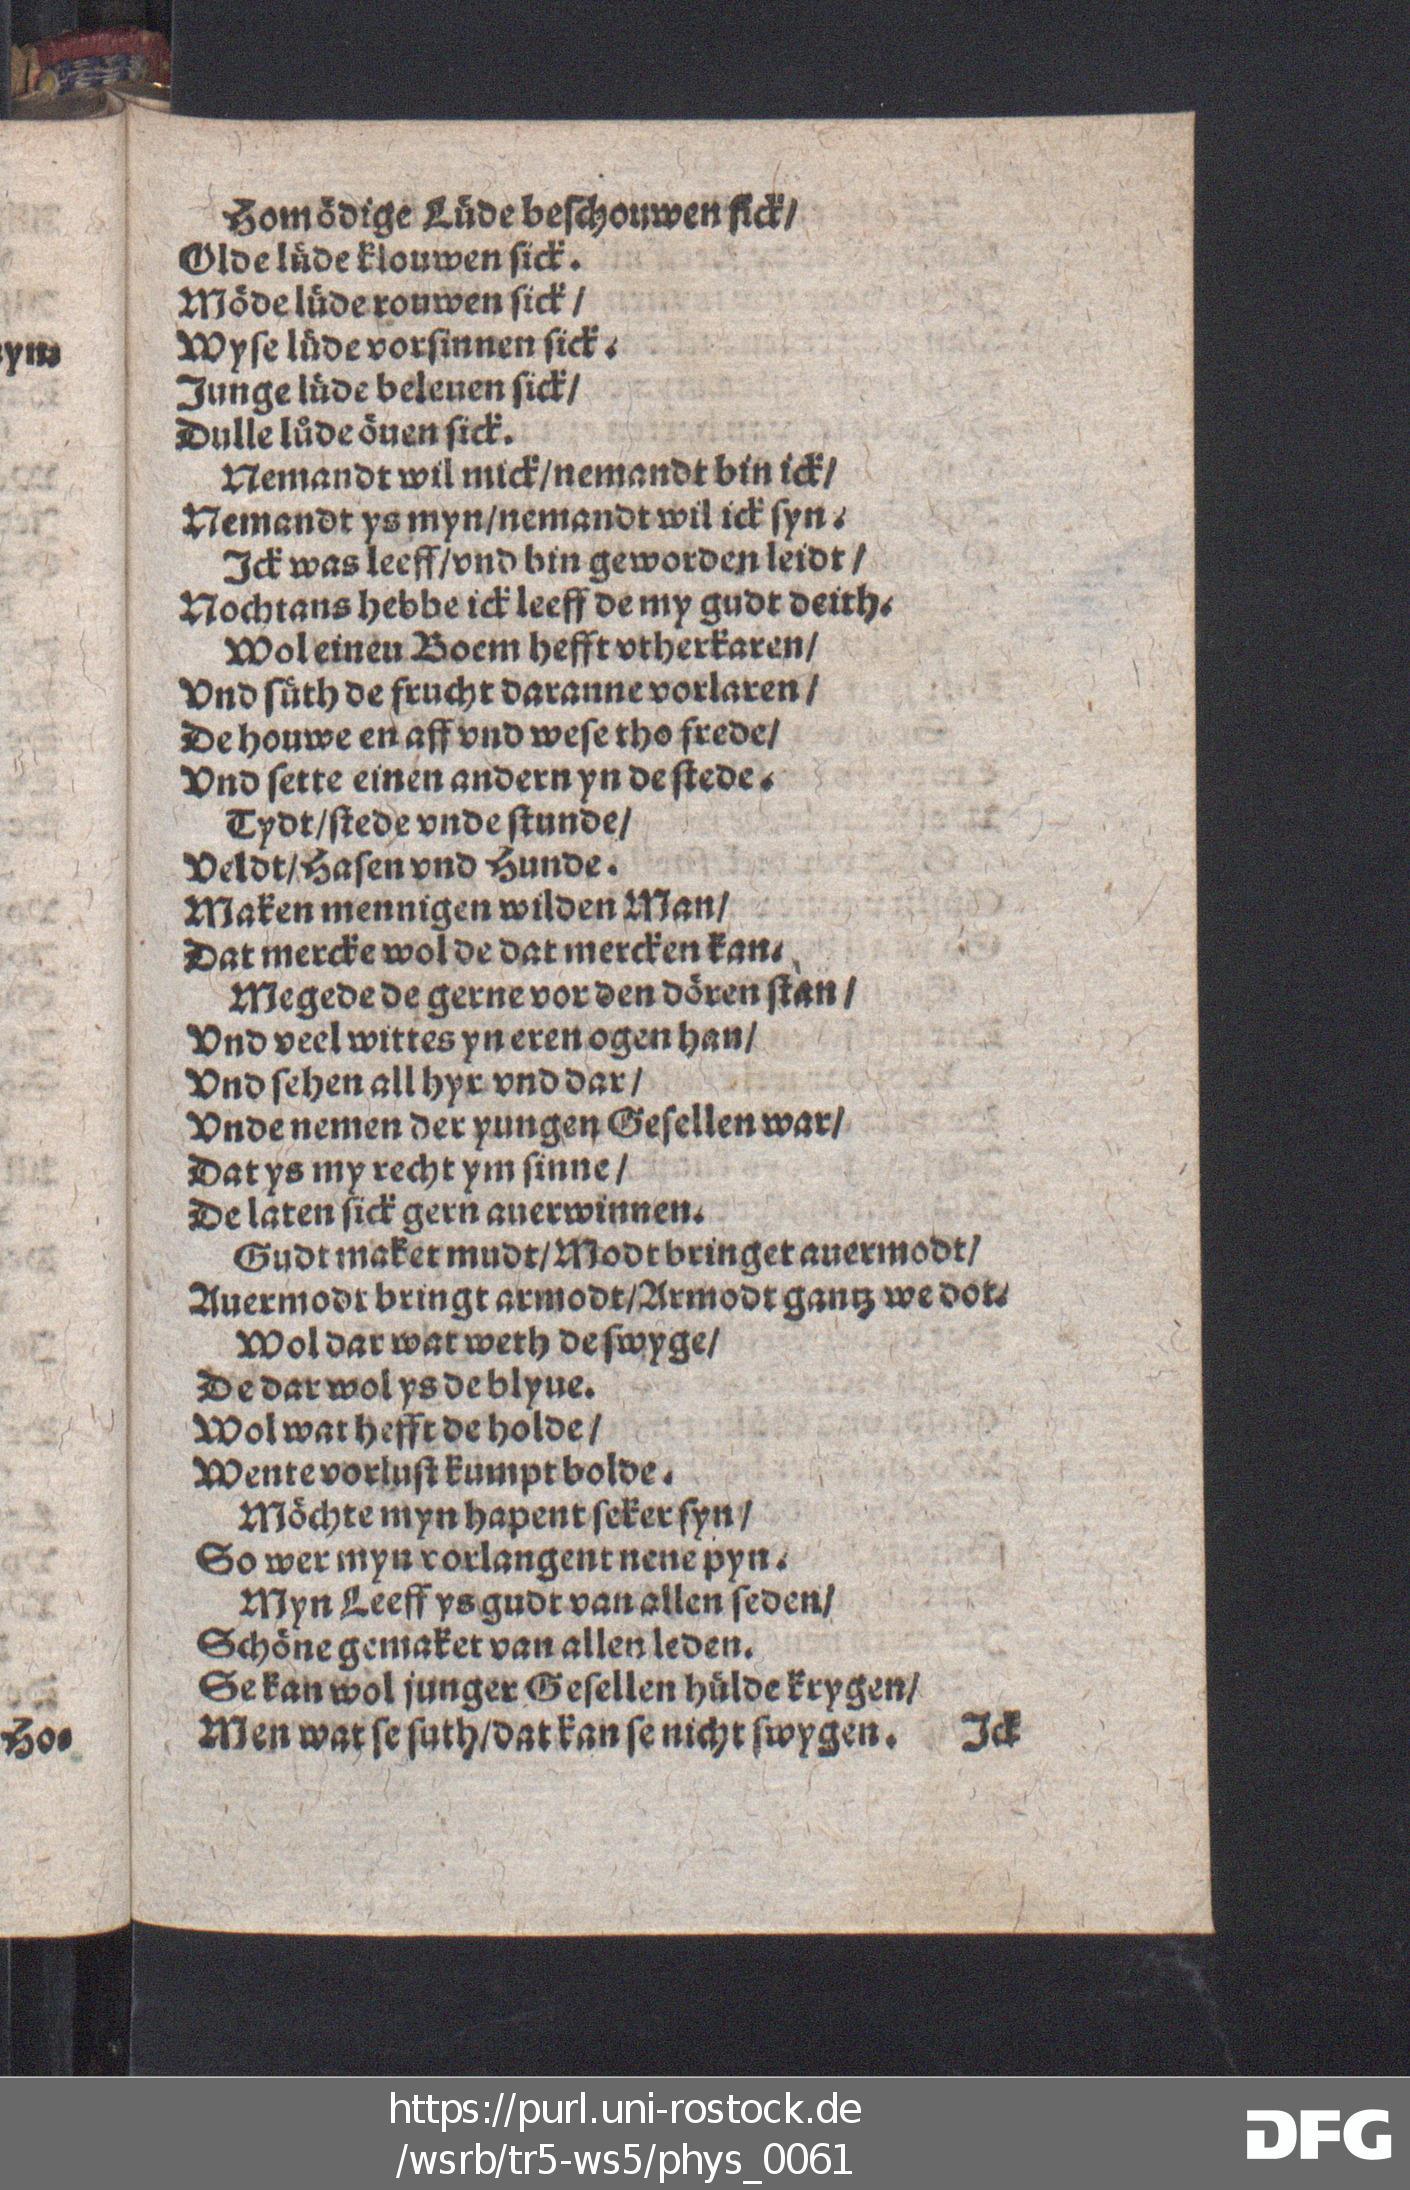 Homödige Lüde beschouwen sick/
Olde lüde klouwen sick.
Möde lüde rouwen sick/
Wyse lüde vorsinnen sick.
Junge lüde beleuen sick/
Dulle lüde öuen sick.
Nemandt wil mick/nemandt bin ick/
Nemandt ys myn/nemandt wil ick syn.
Ick was leeff/vnd bin geworden leidt/
Nochtans hebbe ick leeff de my gudt deith.
Wol einen Boem hefft vtherkaren/
Vnd süth de frucht daranne vorlaren/
De houwe en aff vnd wese tho frede/
Vnd sette einen andern yn de stede.
Tydt/stede vnde stunde/
Veldt/Hasen vnd Hunde.
Maken mennigen wilden Man/
Dat mercke wol de dat mercken kan.
Megede de gerne vor den dören stan/
Vnd veel wittes yn eren ogen han/
Vnd sehen all hyr vnd dar/
Vnde nemen der yungen Gesellen war/
Dat ys my recht ym sinne/
De laten sick gern auerwinnen.
Gudt maket mudt/Modt bringet auermodt/
Auermodt bringt armodt/Armodt gantz we dot.
Wol dar wat weth de swyge/
De dar wol ys de blyue.
Wol wat hefft de holde/
Wente vorlust kumpt bolde.
Möchte myn hapent seker syn/
So wer myn vorlangent nene pyn.
Myn Leeff ys gudt van allen seden/
Schöne gemaket van allen leden.
Se kan wol junger Gesellen hülde krygen/
Men wat se suth/dat kan se nicht swygen.
Ick
yn.
Ho-
https://purl.uni-rostock.de
/wsrb/tr5-ws5/phys_0061
DFG